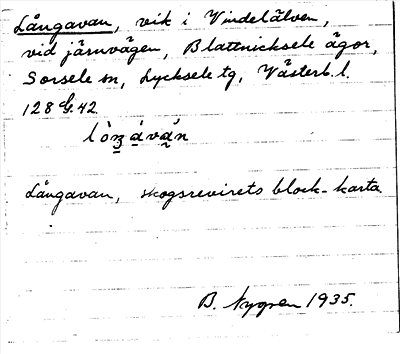 Långavan, vik i Vindelälven,
vid järnvägen, Blattnicksele ägor,
Sorsele sn, Lycksele tg, Västerb. l.
128 G:42.
Långavan, skogsrevirets block-karta
B. Nygren 1935.